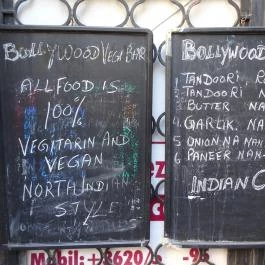 BOLLYWOOD VEGA BAR
ALL FOOD IS
100%
VEGITARIN AND
VEGAN
NORTH INDIAN
STYLE
BOLLYWOOD
1 TANDOORI
2 TANDOORI
3 BUTTER NA
4 GARLIK. NA
5 ONION NA NAN
6 PANEER NAN
INDIAN C
Mobil: +3620/ -95